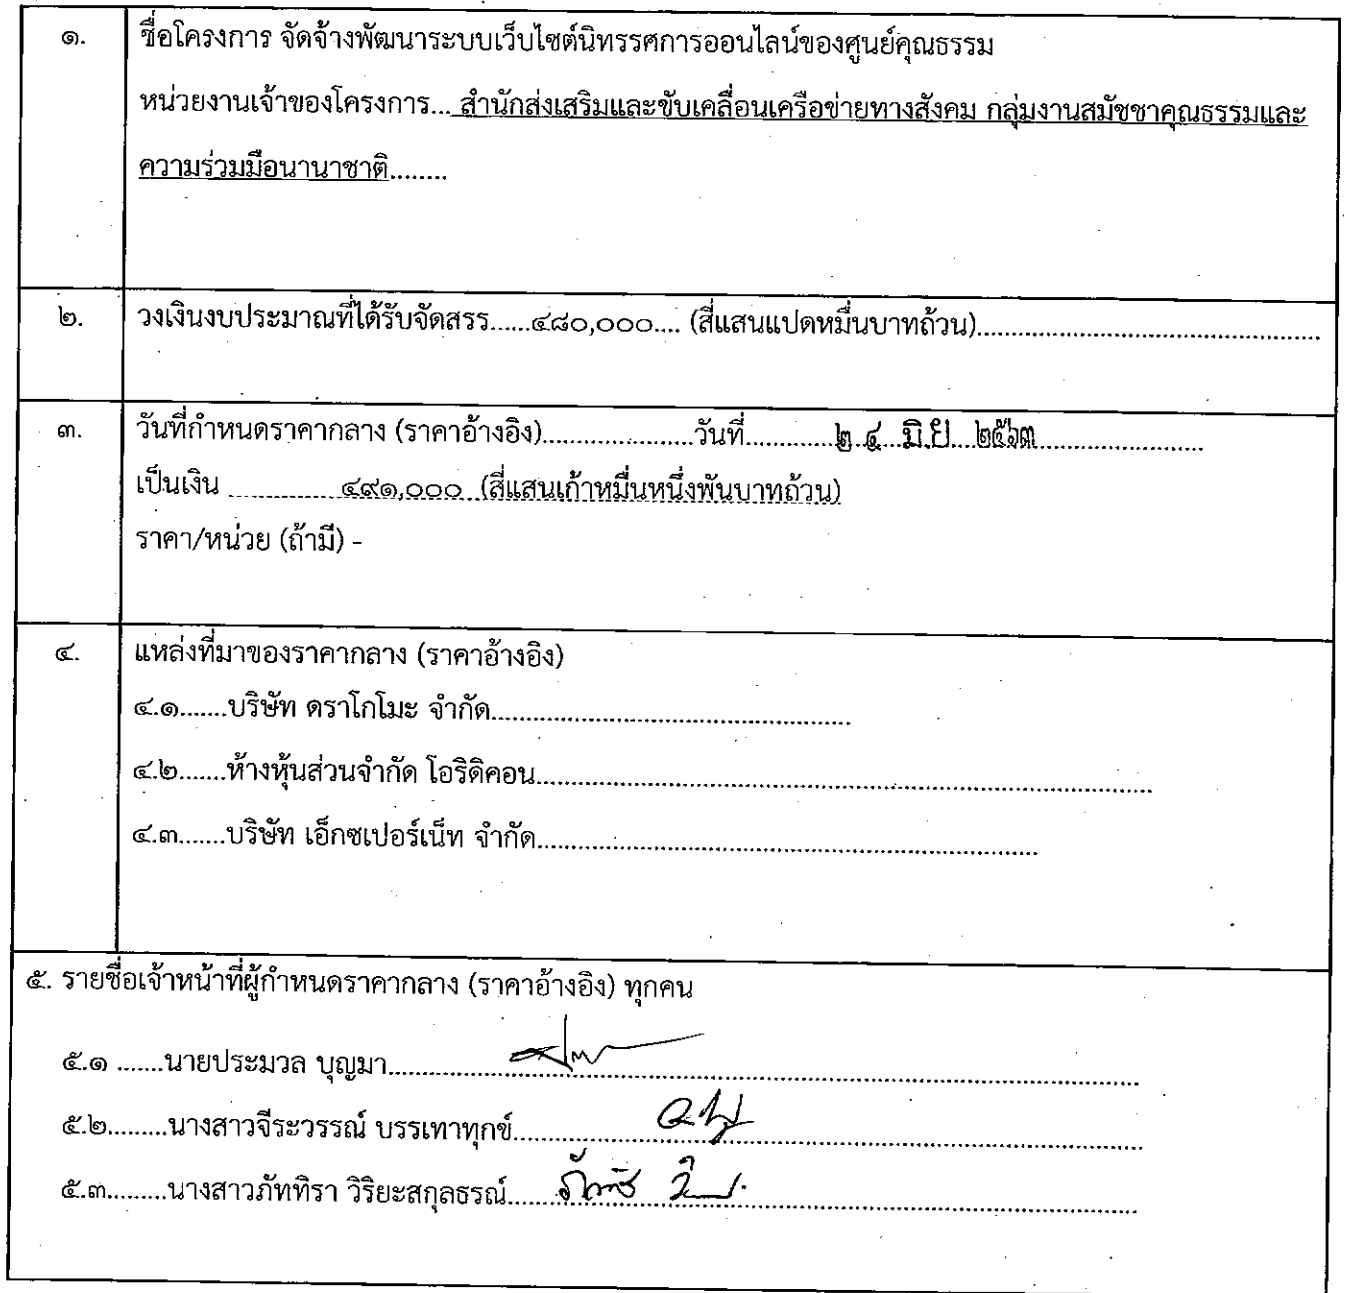 ๑. ชื่อโครงการ จัดจ้างพัฒนาระบบเว็บไซต์นิทรรศการออนไลน์ของศูนย์คุณธรรม
หน่วยงานเจ้าของโครงการ... สำนักส่งเสริมและขับเคลื่อนเครือข่ายทางสังคม กลุ่มงานสมัชชาคุณธรรมและ
ความร่วมมือนานาชาติ........
๒. วงเงินงบประมาณที่ได้รับจัดสรร......๔๘๐,๐๐๐.... (สี่แสนแปดหมื่นบาทถ้วน)..........................................................
๓. วันที่กำหนดราคากลาง (ราคาอ้างอิง)......................วันที่............. ๒ ๔ มิ.ย. ๒๕๖๓........................
เป็นเงิน .................๔๙๑,๐๐๐ (สี่แสนเก้าหมื่นหนึ่งพันบาทถ้วน)
ราคา/หน่วย (ถ้ามี) -
๔. แหล่งที่มาของราคากลาง (ราคาอ้างอิง)
๔.๑.......บริษัท ดราโกโมะ จำกัด.....................................................
๔.๒.......ห้างหุ้นส่วนจำกัด โอริดิคอน..........................................................................................
๔.๓.......บริษัท เอ็กซเปอร์เน็ท จำกัด..........................................................................
๕. รายชื่อเจ้าหน้าที่ผู้กำหนดราคากลาง (ราคาอ้างอิง) ทุกคน
๕.๑ .......นายประมวล บุญมา..............................................................................................................
๕.๒.........นางสาวจีระวรรณ์ บรรเทาทุกข์............................................................................................
๕.๓.........นางสาวภัททิรา วิริยะสกุลธรณ์............................................................................................